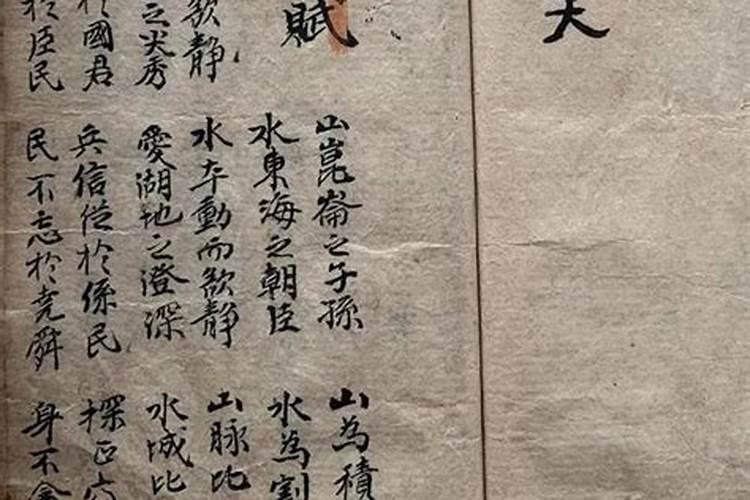 賦
山崑崙之子孫 山為積
水東海之朝臣 水為割
欲静 水夲動而欲静 山脉比
之尖秀 愛湖地之澄深 水城比
國君 兵信從於係民 探正
於臣民 民不忘於堯舜 身不